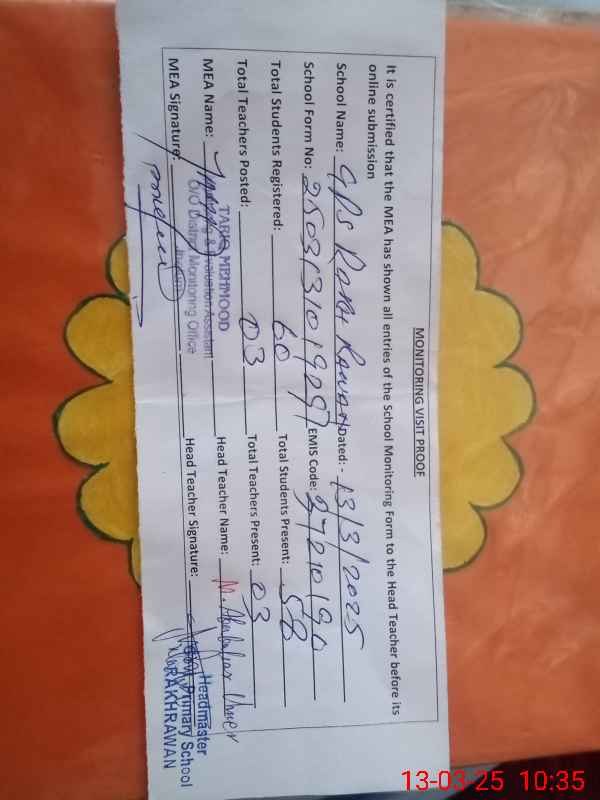 MONITORING VISIT PROOF
It is certified that the MEA has shown all entries of the School Monitoring Form to the Head Teacher before its
online submission
School Name: GPS Rakh Rawan Dated: - 13/3/2025
School Form No: EMIS Code: 37210190
Total Students Registered: 60 Total Students Present: 58
Total Teachers Posted: 03 Total Teachers Present: 03
TARIQ MEHMOOD
MEA Name: Monitoring & Evaluation Assistant Head Teacher Name: M. Abubakar Umer
O/O District Monitoring Office
MEA Signature: Head Teacher Signature:
Headmaster
Govt. Primary School
RAKHRAWAN
13-03-25 10:35